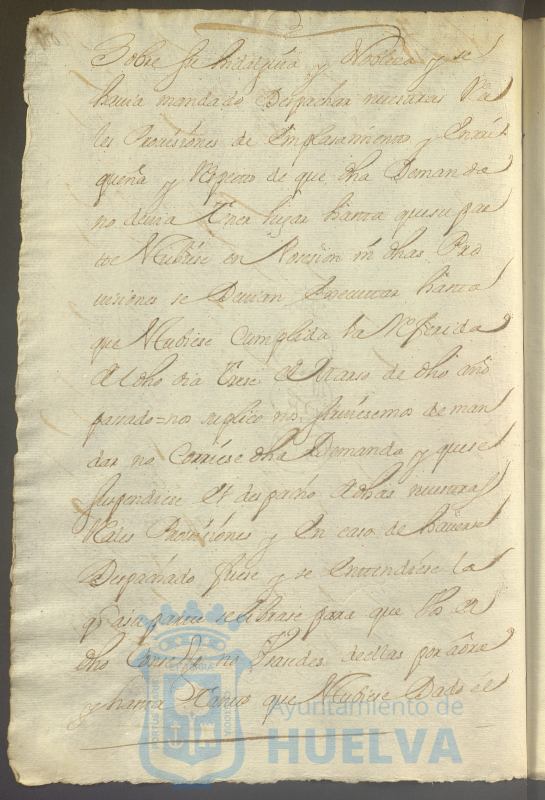 Sobre su hidalguia y Nobleza y se
havia mandado Despachar nuestras Rea
les Provisiones de Emplasamiento y
quena y Respecto de que dha Demanda
no devia Tener lugar hasta que su par
te estubiese en Posesion ni dhas Pro
visiones se Devian Executar hasta
que estubiese Cumplida la Referida
dho dia Trese de Marso de dho año
pasado=nos suplico nos sirviesemos de man
dar no Corriese dha Demanda y que se
suspendiese el despacho de dhas nuestras
Reales Provisiones y en caso de haverse
Despachado fuese y se entendiese la
que a su parte se librase para que Vos el
dho Conse no Usasedes de ellas por aora
y hasta Tanto que estubiese Dado el
Ayuntamiento de
HUELVA